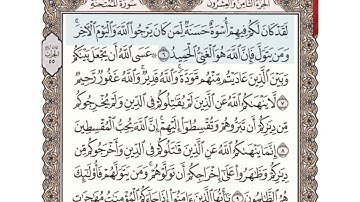 الجزء الثامن والعشرون سورة الممتحنة
لَقَدْ كَانَ لَكُمْ فِيهِمْ أُسْوَةٌ حَسَنَةٌ لِّمَن كَانَ يَرْجُوا۟ ٱللَّهَ وَٱلْيَوْمَ ٱلْءَاخِرَ ۚ
وَمَن يَتَوَلَّ فَإِنَّ ٱللَّهَ هُوَ ٱلْغَنِىُّ ٱلْحَمِيدُ ٦ ۞ عَسَى ٱللَّهُ أَن يَجْعَلَ بَيْنَكُمْ
وَبَيْنَ ٱلَّذِينَ عَادَيْتُم مِّنْهُم مَّوَدَّةً ۚ وَٱللَّهُ قَدِيرٌ ۚ وَٱللَّهُ غَفُورٌ رَّحِيمٌ
٧ لَّا يَنْهَىٰكُمُ ٱللَّهُ عَنِ ٱلَّذِينَ لَمْ يُقَٰتِلُوكُمْ فِى ٱلدِّينِ وَلَمْ يُخْرِجُوكُم
مِّن دِيَٰرِكُمْ أَن تَبَرُّوهُمْ وَتُقْسِطُوٓا۟ إِلَيْهِمْ ۚ إِنَّ ٱللَّهَ يُحِبُّ ٱلْمُقْسِطِينَ
٨ إِنَّمَا يَنْهَىٰكُمُ ٱللَّهُ عَنِ ٱلَّذِينَ قَٰتَلُوكُمْ فِى ٱلدِّينِ وَأَخْرَجُوكُم مِّن
دِيَٰرِكُمْ وَظَٰهَرُوا۟ عَلَىٰٓ إِخْرَاجِكُمْ أَن تَوَلَّوْهُمْ ۚ وَمَن يَتَوَلَّهُمْ فَأُو۟لَٰٓئِكَ
هُمُ ٱلظَّٰلِمُونَ ٩ يَٰٓأَيُّهَا ٱلَّذِينَ ءَامَنُوٓا۟ إِذَا جَآءَكُمُ ٱلْمُؤْمِنَٰتُ مُهَٰجِرَٰتٍ
الحزب
٥٥